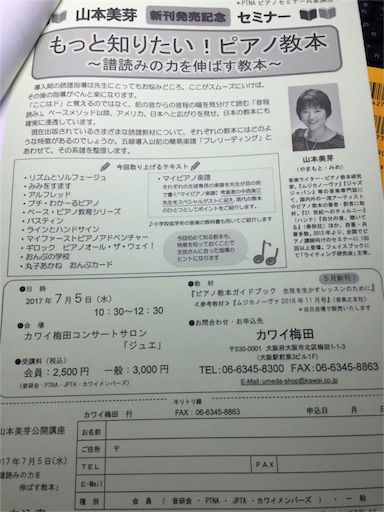 *PTNA ピアノセミナー対象講座*
山本美芽 新刊発売記念 セミナー
もっと知りたい!ピアノ教本
～譜読みの力を伸ばす教本～
導入期の読譜指導は先生にとってもお悩みどころ、ここがスムーズにいけば、
その後の指導がぐんと楽になります。
「ここはド」と覚えるのではなく、前の音からの音程の幅を見分けて読む「音程
読み」。ベースメソッド以降、アメリカ、日本へと広がりを見せ、日本の教本にも
確実に浸透しています。
現在出版されているさまざまな読譜教材について、それぞれの教本にはどのよ
うな特徴があるのでしょうか。五線導入以前の簡易楽譜「プレリーディング」と
あわせて、その系譜を整理します。
今回取り上げるテキスト
・リズムとソルフェージュ
・みみをすます
・アルフレッド
・プチ・わかーるピアノ
・ベース・ピアノ教育シリーズ
・バスティン
・ラインとハンドサイン
・マイファーストピアノアドベンチャー
・ギロック ピアノオール・ザ・ウェイ!
・おんぷの学校
・丸子あかね おんぷカード
・マイピアノ楽譜
それぞれの生徒専用の楽譜を先生が目の前
で書く"マイピアノ楽譜"考案者の中西美江
先生をスペシャルゲストに迎え、現代の教本
のひとつとしてポイントをご紹介します。
♪小学校低学年の音楽の教科書も用いてご紹介します
今回初めて知る教本も、
特徴を知っておくことで
生徒さんに合った指導の
ヒントになります
山本美芽
(やまもと・みめ)
音楽ライター・ピアノ教本研究
家。『ムジカノーヴァ』『ジャズ
ジャパン』等の音楽専門誌にて、
国内外の一流アーティスト
やピアノ教本の著者・訳者に取
材。『21世紀へのチェルニー』
(ハンナ)『自分の音、聴いて
る?』(春秋社)ほか、自著・共
著多数。2013年より、全国でピ
アノ講師向けのセミナーに100
回以上登壇。フェイスブックに
て「ライティング研究会」主宰。
●日 時
2017年7月5日(水)
10:30～12:30
●会 場
カワイ梅田コンサートサロン
「ジュエ」
●受講料(税込)
会員:2,500円 一般:3,000円
(音研会・PTNA・JPTA・カワイメンバーズ)
●教 材
5月新刊!
『ピアノ教本ガイドブック 生徒を生かすレッスンのために』
<参考教材>『ムジカノーヴァ2016年11月号』(音楽之友社)
*当日会場で販売いたします
●お問合わせ・お申込先
カワイ梅田
〒530-0001 大阪府大阪市北区梅田1-1-3
(大阪駅前第3ビル1F)
TEL:06-6345-8300 FAX:06-6345-8863
E-Mail:umeda-shop@kawai.co.jp
キリトリ線
カワイ梅田 行 FAX:06-6345-8863 申込日 月 日
山本美芽公開講座
2017年7月5日(水)
「譜読みの力を
伸ばす教本」
お名前
ご住所 〒
TEL FAX
E-Mail
種 別 会 員 (音研会・PTNA・JPTA・カワイメンバーズ)・ 一 般